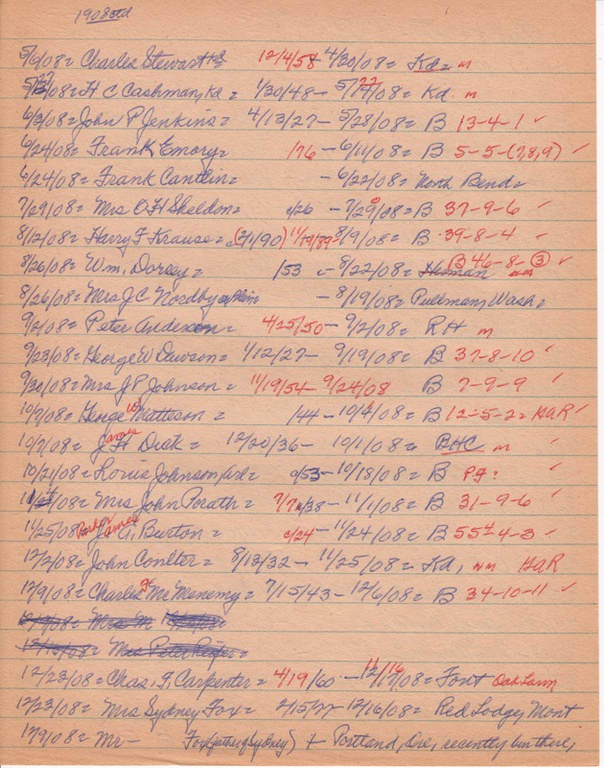 1908
5/6/08 = Charles Stewart = 12/4/58 4/30/08 = Kd = m
H C Cashman, Kd = 1/30/48 - 5/22/08 = Kd m
6/3/08 = John P Jenkins = 4/13/27 - 5/28/08 = B 13-4-1 ✓
6/24/08 = Frank Emory = /76 - 6/11/08 = B 5-5-(7,8,9) ✓
6/24/08 = Frank Cantlin = - 6/22/08 = North Bend =
7/29/08 = Mrs O H Sheldon = c/26 - 7/29/08 = B 37-9-6 ✓
8/12/08 = Harry F Krause = (2/1/90) 11/19/39 - 8/9/08 = B 39-8-4 ✓
8/26/08 = Wm. Dorsey = /53 - 8/22/08 = Human B 46-8-3 ✓ nm
8/26/08 = Mrs J C Nordby - 8/19/08 = Pullman, Wash =
9/2/08 = Peter Anderson = 4/25/50 - 9/2/08 = R H m
9/23/08 = George W Dawson = 1/12/27 - 9/19/08 = B 37-8-10 ✓
9/30/08 = Mrs J P Johnson = 11/19/54 - 9/24/08 B 7-9-9 ✓
10/7/08 = George W Mattison = /44 - 10/4/08 = B 12-5-2 = GAR ✓
10/7/08 = J H Dick = 12/20/36 - 10/1/08 = BHC m ✓
10/21/08 = Louis Johnson, = c/53 - 10/18/08 = B PF? ✓
Mrs John Porath = 7/7/38 - 11/1/08 = B 31-9-6 ✓
11/25/08 Parker James J. A. Burton = c/24 - 11/24/08 = B 55 4-3 ✓
12/2/08 = John Coulter = 8/13/32 - 11/25/08 = Kd, nm GAR
12/9/08 = Charles McMenemy = 7/15/43 - 12/6/08 = B 34-10-11 ✓
Mrs M
Mrs Peter
12/23/08 = Chas, F, Carpenter = 4/19/60 - 11/16 12/17/08 = Font Oak Lawn
12/23/08 = Mrs Sydney Fox = 2/15/77 - 12/16/08 = Red Lodge, Mont
Mr - Fox (father of Sydney) + Portland, Ore, recently bur there,